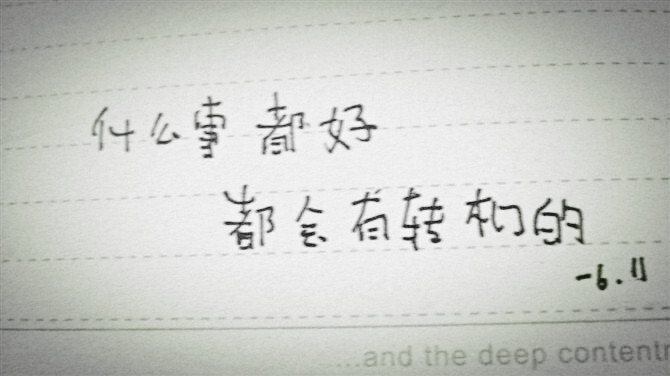 什么事都好
都会有转机的
-6.11
...and the deep content